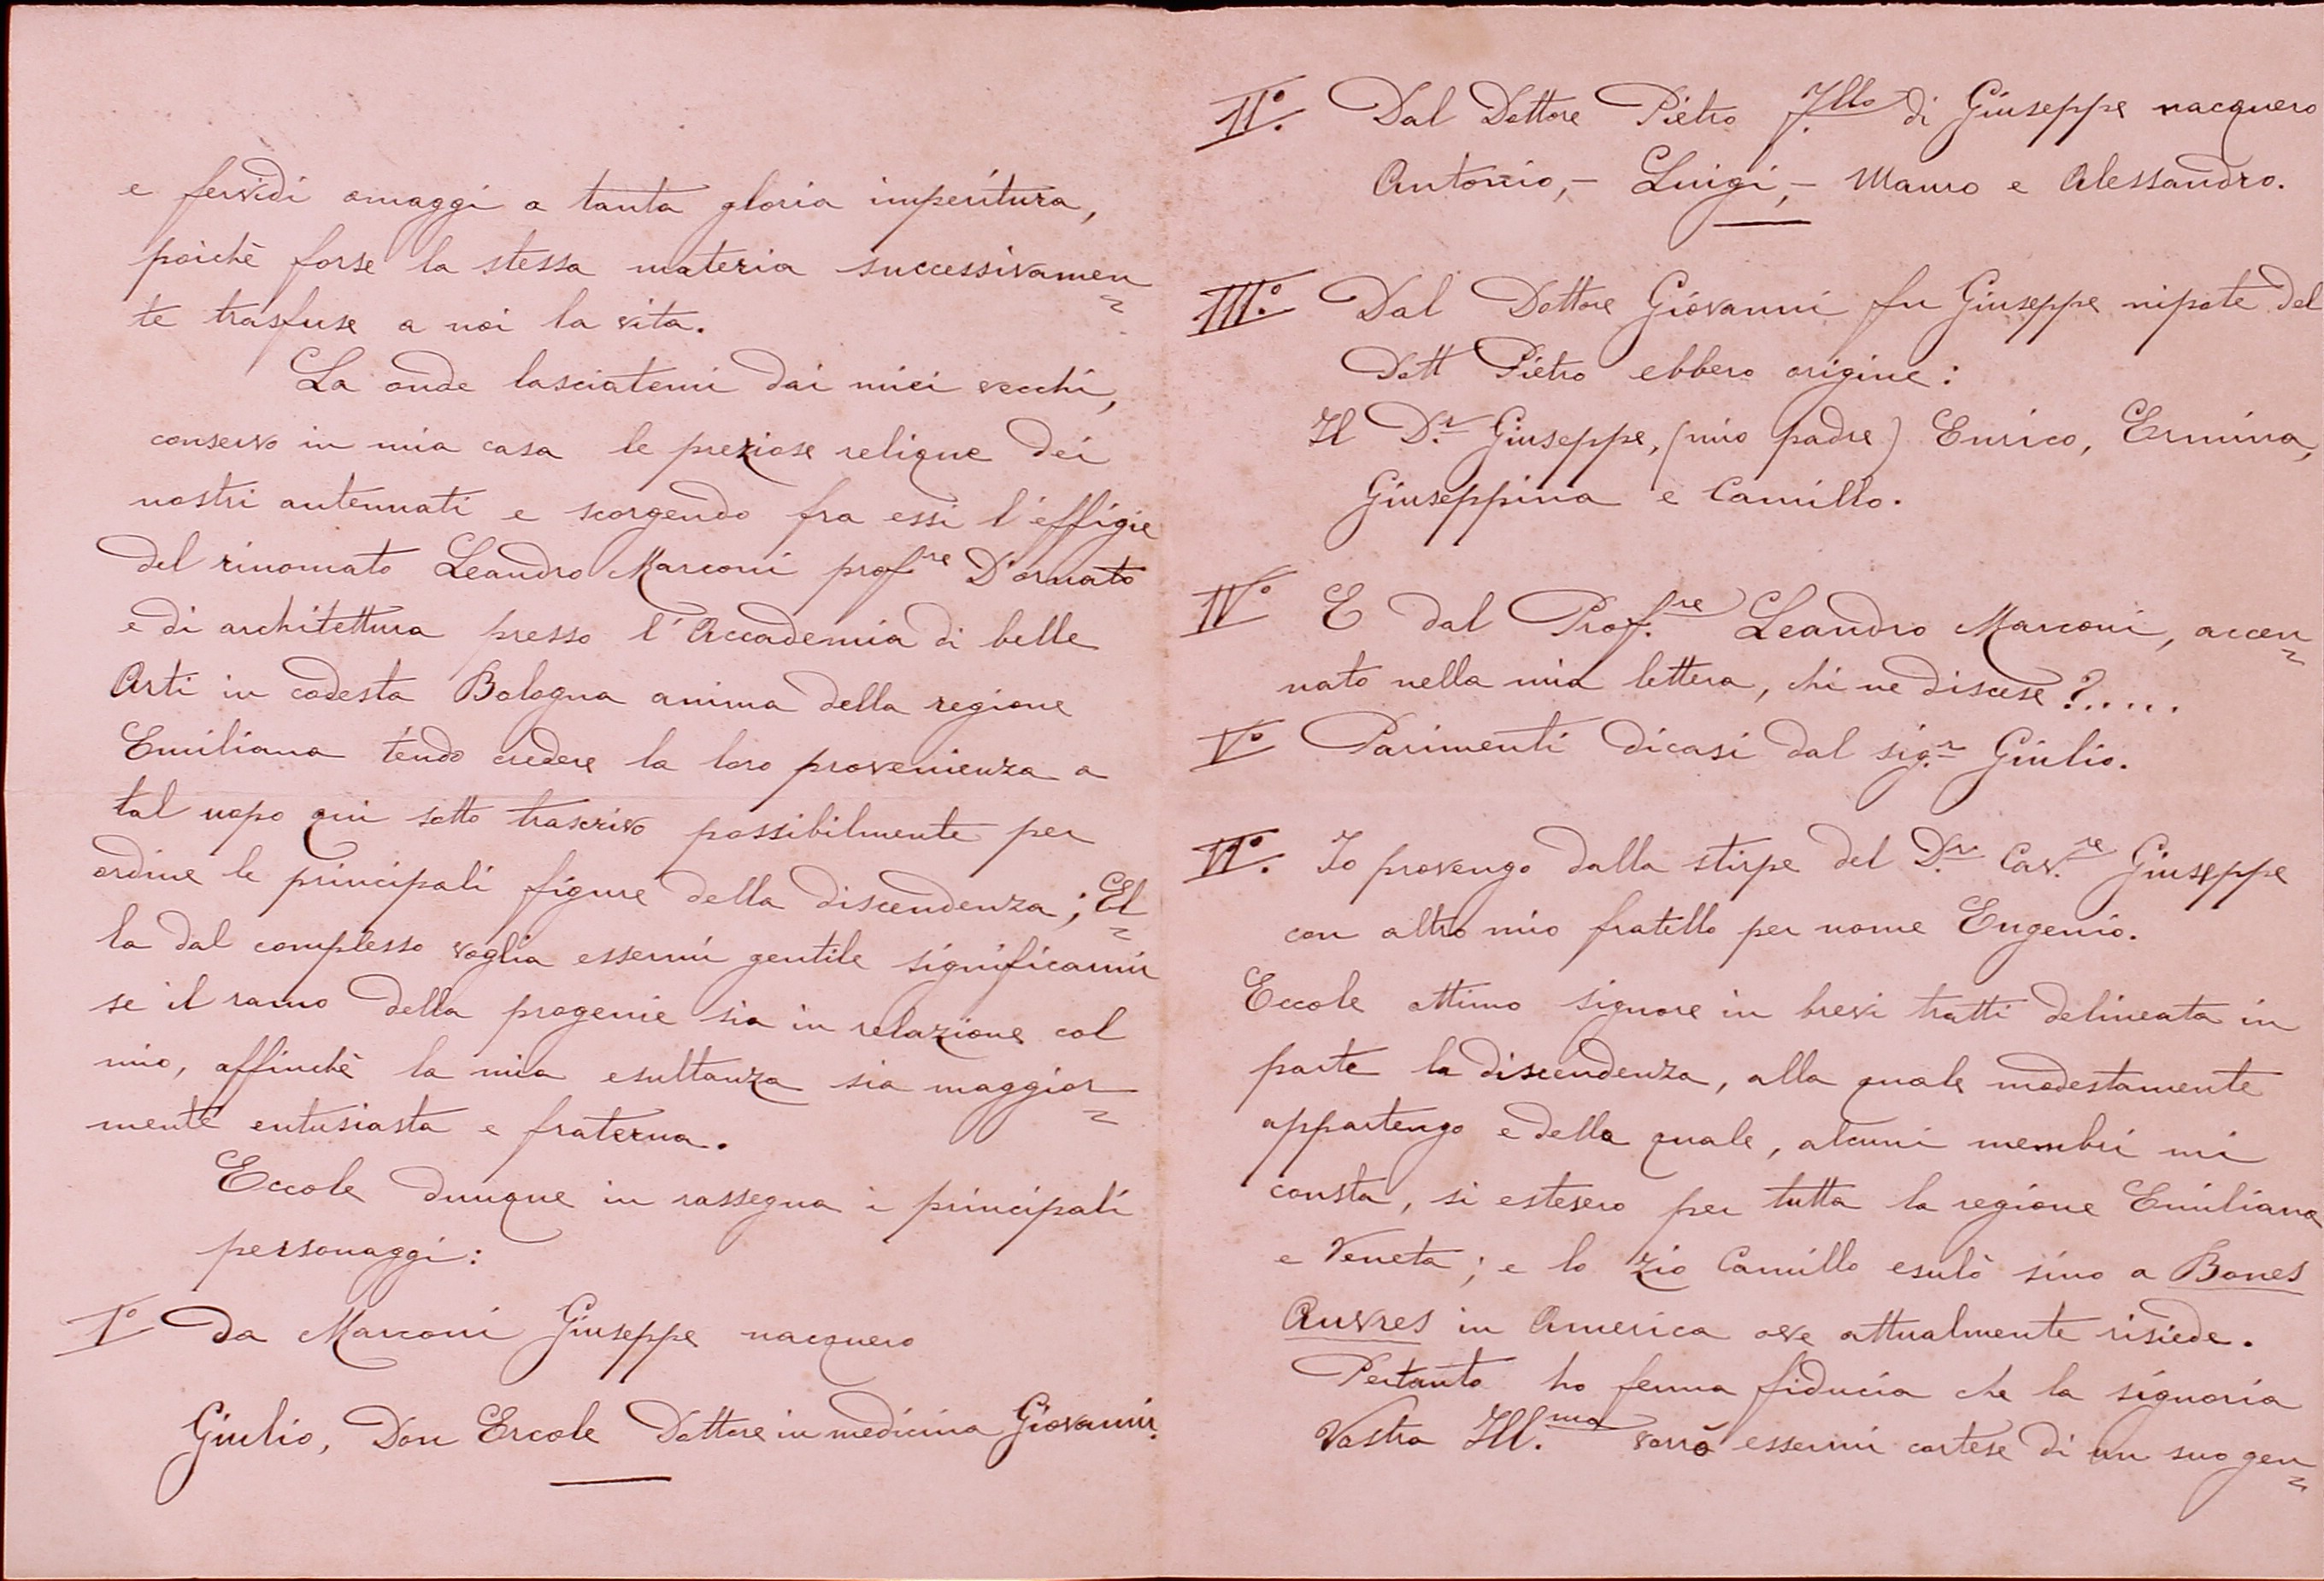 e fervidi omaggi a tanta gloria imperitura,
poichè forse la stessa materia successivamen=
te trasfuse a noi la vita.
La onde lasciatemi dai miei vecchi,
conservo in mia casa le preziose relique dei
nostri antennati e scorgendo fra essi l'effigie
del rinomato Leandro Marconi prof.re D'ornato
e di architettura presso l'Accademia di belle
Arti in codesta Bologna anima della regione
Emiliana tendo credere la loro provenienza a
tal uopo qui sotto trascrivo possibilmente per
ordine le principali figure della discendenza; El=
la dal complesso voglia essermi gentile significarmi
se il ramo della progenie sia in relazione col
mio, affinchè la mia esultanza sia maggior=
mente entusiasta e fraterna.
Eccole dunque in rassegna i principali
personaggi:
I° Da Marconi Giuseppe nacquero
Giulio, Don Ercole Dottore in medicina Giovanni.
II°. Dal Dottore Pietro f.llo di Giuseppe nacquero
Antonio, - Luigi, - Mauro e Alessandro.
III°. Dal Dottore Giovanni fu Giuseppe nipote del
Dott Pietro ebbero origine:
Il D.r Giuseppe, (mio padre) Enrico, Ermina,
Giuseppina e Camillo.
IV° E dal Prof.re Leandro Marconi, accen=
nato nella mia lettera, chi ne discese?.....
V° Parimenti dicasi dal sig.r Giulio.
VI°. Io provengo dalla stirpe del D.r Cav.re Giuseppe
con altro mio fratello per nome Eugenio.
Eccole ottimo signore in brevi tratti delineata in
parte la discendenza, alla quale modestamente
appartengo e della quale, alcuni membri mi
consta, si estesero per tutta la regione Emiliana
e Veneta; e lo zio Camillo esulò sino a Bones
Auvres in America ove attualmente risiede.
Pertanto ho ferma fiducia che la signoria
Vostra Ill.ma vorrà essermi cortese di un suo gen=